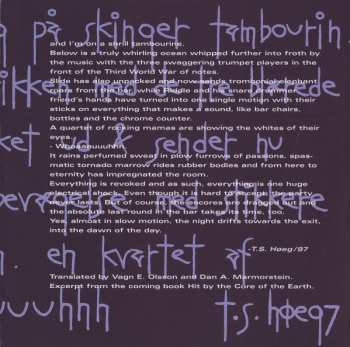 på skinger tambourin
and I'm on a shrill tambourine.
Below is a truly whirling ocean whipped further into froth by
the music with the three swaggering trumpet players in the
front of the Third World War of notes.
Slide has also unpacked and now sends trombonic elephant
roars from the bar, while Riddle and his snare drummer
friend's hands have turned into one single motion with their
sticks on everything that makes a sound, like bar chairs,
bottles and the chrome counter.
A quartet of rocking mamas are showing the whites of their
eyes.
ket ud & sender nu
- Whoaaauuuhhh
It rains perfumed sweat in plow furrows of passions, spas-
matic tornado marrow rides rubber bodies and from here to
eternity has impregnated the room.
Everything is revoked and as such, everything is one huge
electrical shock. Even though it is hard to accept the party
never lasts. But of course, the encores are dragged out and
the absolute last round in the bar takes its time, too.
Yes, almost in slow motion, the night drifts towards the exit,
into the dawn of the day.
-T.S. Høeg/97
en kvartet af
Translated by Vagn E. Olsson and Dan A. Marmorstein.
Excerpt from the coming book Hit by the Core of the Earth.
uuuhhh t.s.høeg97